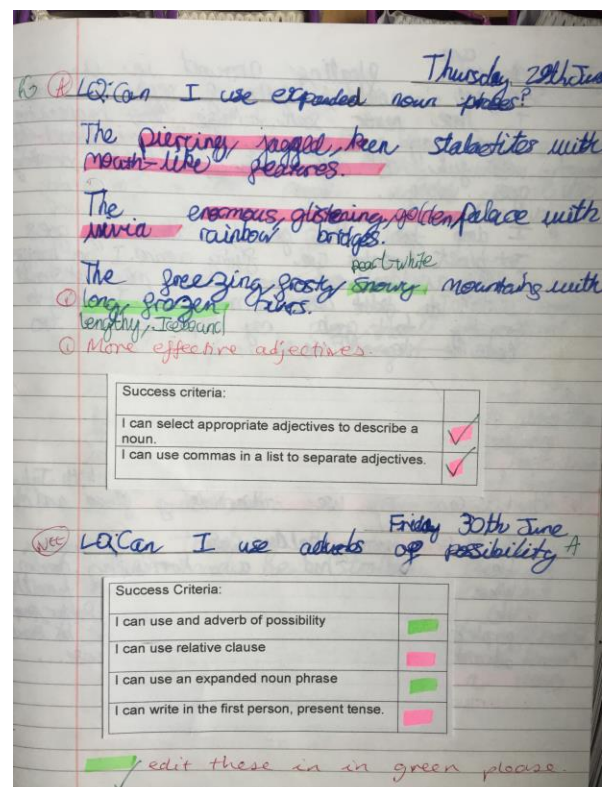 Thursday 29th June
A LQ: Can I use expanded noun phrases?
The piercing, jagged, keen stalactites with
mouth-like features.
The enormous, glistening, golden palace with
rainbow bridges.
pearl-white
The freezing, frosty, snowy mountains with
① long, frozen
lengthy, Icebound
① More effective adjectives.
Success criteria:
I can select appropriate adjectives to describe a
noun.
I can use commas in a list to separate adjectives.
Friday 30th June
LQ: Can I use adverbs of possibility A
Success Criteria:
I can use and adverb of possibility
I can use relative clause
I can use an expanded noun phrase
I can write in the first person, present tense.
edit these in in green please.